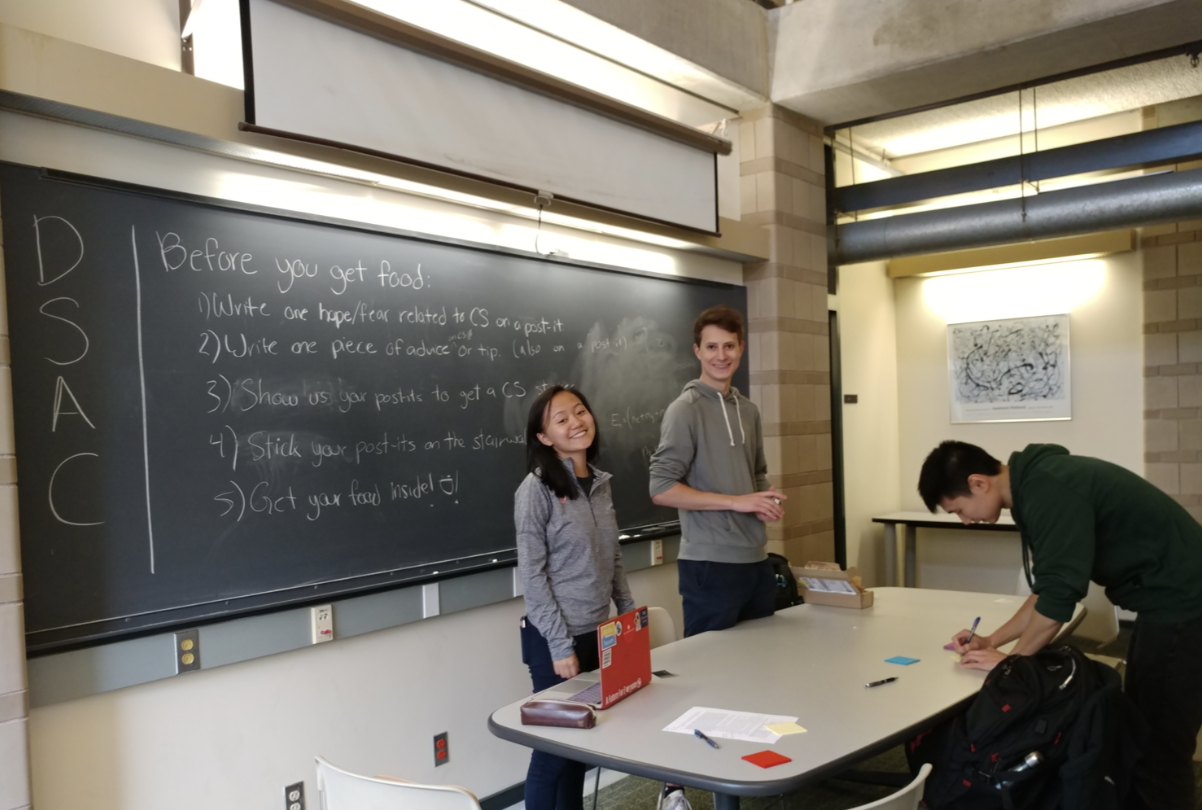 DSAC
Before you get food:
1) Write one hope/fear related to CS on a post-it
2) Write one piece of advice or tip. (also on a post-it)
3) Show us your post-its to get a CS
4) Stick your post-its on the
5) Get your food inside!